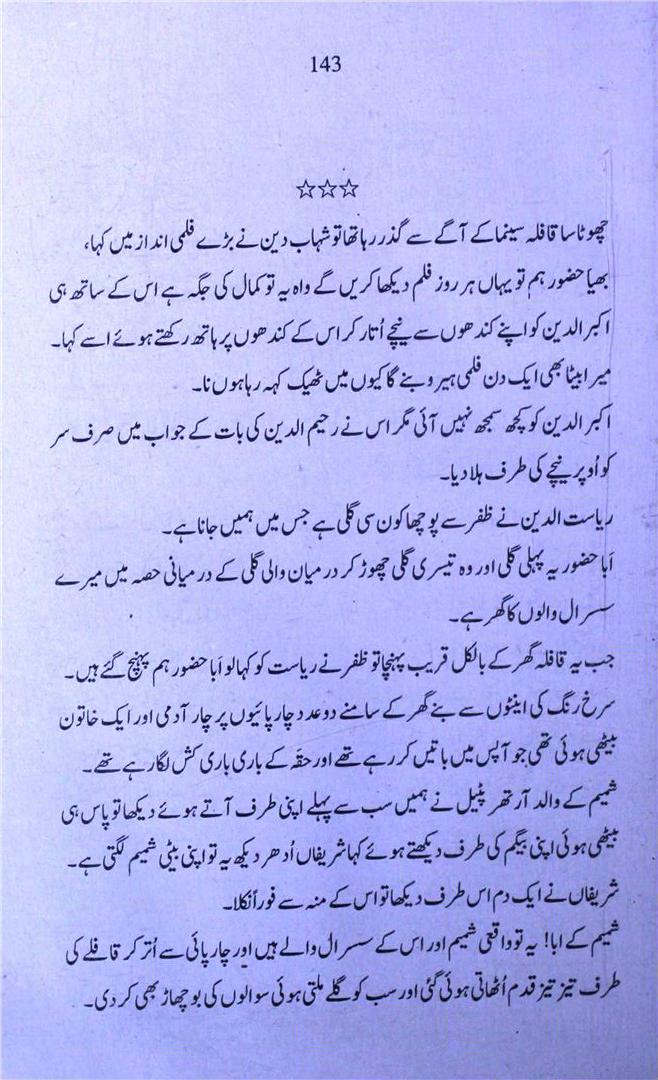 143
☆☆☆
چھوٹا سا قافلہ سینما کے آگے سے گذر رہا تھا تو شہاب دین نے بڑے فلمی انداز میں کہا،
بھیا حضور ہم تو یہاں ہر روز فلم دیکھا کریں گے واہ یہ تو کمال کی جگہ ہے اس کے ساتھ ہی
اکبر الدین کو اپنے کندھوں سے نیچے اُتار کر اس کے کندھوں پر ہاتھ رکھتے ہوئے اسے کہا۔
میرا بیٹا بھی ایک دن فلمی ہیرو بنے گا کیوں میں ٹھیک کہہ رہا ہوں نا۔
اکبر الدین کو کچھ سمجھ نہیں آئی مگر اس نے رحیم الدین کی بات کے جواب میں صرف سر
کو اُوپر نیچے کی طرف ہلا دیا۔
ریاست الدین نے ظفر سے پوچھا کون سی گلی ہے جس میں ہمیں جانا ہے۔
اَبا حضور یہ پہلی گلی اور وہ تیسری گلی چھوڑ کر درمیان والی گلی کے درمیانی حصہ میں میرے
سسرال والوں کا گھر ہے۔
جب یہ قافلہ گھر کے بالکل قریب پہنچا تو ظفر نے ریاست کو کہا لو اَبا حضور ہم پہنچ گئے ہیں۔
سرخ رنگ کی اینٹوں سے بنے گھر کے سامنے دو عدد چارپائیوں پر چار آدمی اور ایک خاتون
بیٹھی ہوئی تھی جو آپس میں باتیں کر رہے تھے اور حقہ کے باری باری کش لگا رہے تھے۔
شمیم کے والد آرتھر پٹیل نے ہمیں سب سے پہلے اپنی طرف آتے ہوئے دیکھا تو پاس ہی
بیٹھی ہوئی اپنی بیگم کی طرف دیکھتے ہوئے کہا شریفاں اُدھر دیکھ یہ تو اپنی بیٹی شمیم لگتی ہے۔
شریفاں نے ایک دم اس طرف دیکھا تو اس کے منہ سے فوراً نکلا۔
شمیم کے ابا! یہ تو واقعی شمیم اور اس کے سسرال والے ہیں اور چارپائی سے اُتر کر قافلے کی
طرف تیز تیز قدم اُٹھاتی ہوئی گئی اور سب کو گلے ملتی ہوئی سوالوں کی بوچھاڑ بھی کر دی۔